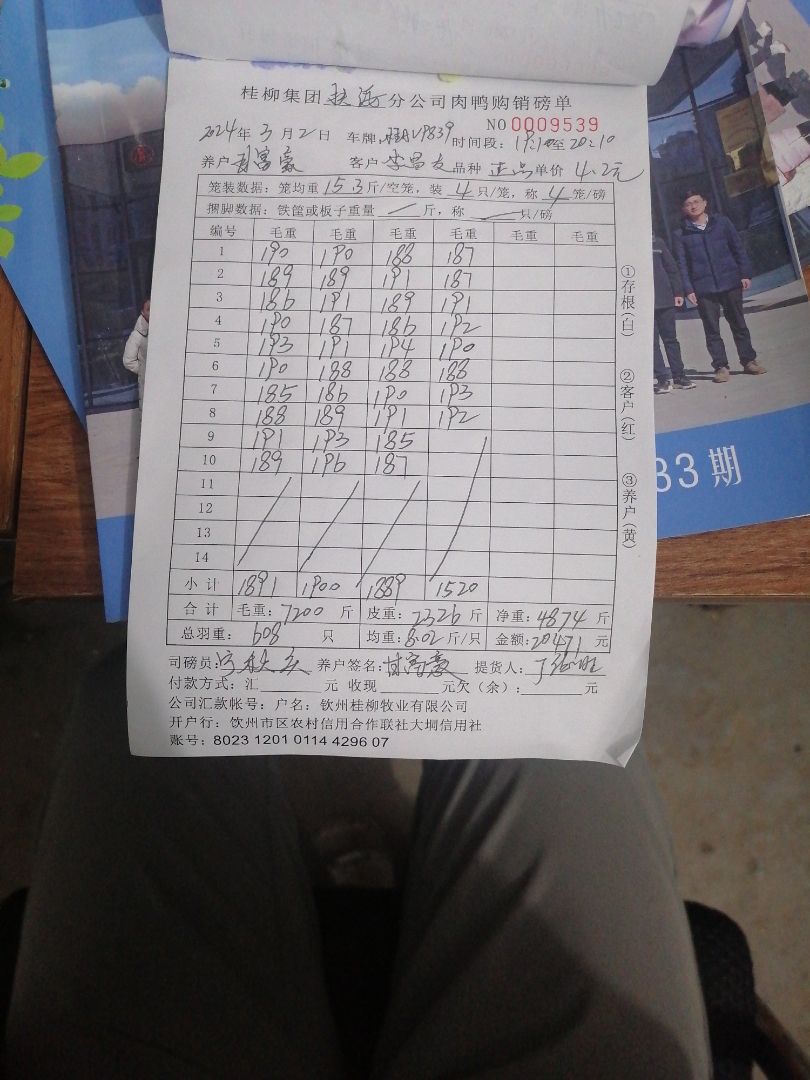 桂柳集团 分公司肉鸭购销磅单
NO 0009539
2024年3月2日 车牌: 时间段:19:10至20:10
养户 富豪 客户 李昌友 品种 正品 单价 4.2元
笼装数据:笼均重15.3斤/空笼,装4只/笼,称4笼/磅
捆脚数据:铁筐或板子重量 / 斤,称 / 只/磅
编号 毛重 毛重 毛重 毛重 毛重 毛重
1 190 190 188 187
2 189 189 191 187
3 186 191 189 191
4 190 187 186 192
5 193 191 194 190
6 190 188 188 188
7 185 186 190 193
8 188 189 191 192
9 191 193 185
10 189 196 187
11
12
13
14
小计 1891 1900 1889 1520
合计 毛重:7200 斤 皮重:2326 斤 净重:4874 斤
总羽重:608 只 均重:8.02斤/只 金额:20471 元
司磅员: 养户签名:甘富豪 提货人:
付款方式:汇 元 收现 元欠(余): 元
公司汇款帐号:户名:钦州桂柳牧业有限公司
开户行:钦州市区农村信用合作联社大垌信用社
账号:8023 1201 0114 4296 07
①存根(白)
②客户(红)
③养户(黄)
33期